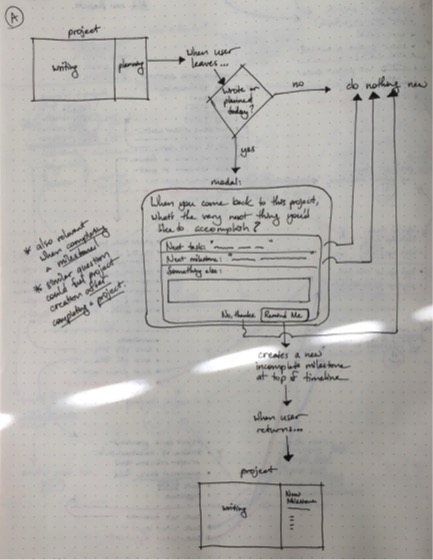 A
project
writing
planning
when user
leaves...
wrote or
planned
today?
no
do nothing new
yes
modal:
When you come back to this project,
what's the very next thing you'd
like to accomplish?
Next task: "
"
Next milestone: "
"
Something else:
No, thanks
Remind Me
* also relevant
when completing
a milestone!
* similar question
could fuel project
creation after
completing a project.
creates a new
incomplete milestone
at top of timeline
when user
returns...
project
writing
New
Milestone